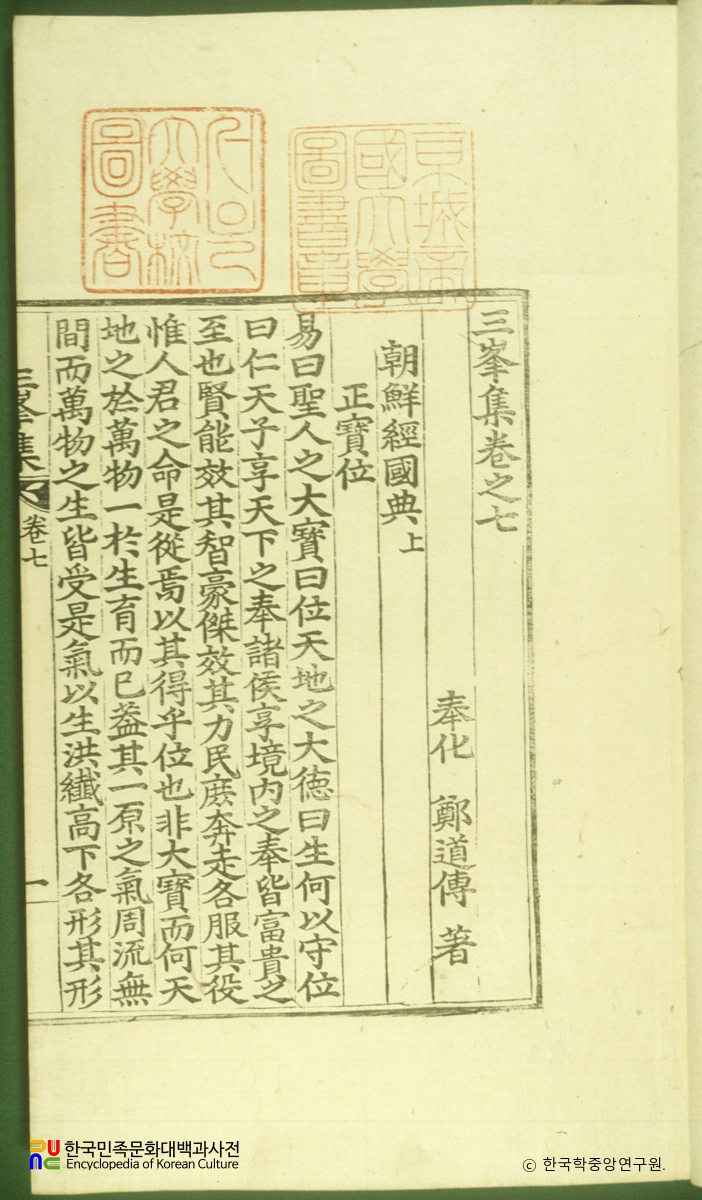 京城帝
國大學
圖書章
大學校
圖書
三峯集卷之七
奉化 鄭道傳 著
朝鮮經國典上
正寶位
易曰聖人之大寶曰位天地之大德曰生何以守位
曰仁天子享天下之奉諸侯享境內之奉皆富貴之
至也賢能效其智豪傑效其力民庶奔走各服其役
惟人君之命是從焉以其得乎位也非大寶而何天
地之於萬物一於生育而已盖其一原之氣周流無
間而萬物之生皆受是氣以生洪纖高下各形其形
三峯集
卷七
一
한국민족문화대백과사전
Encyclopedia of Korean Culture
© 한국학중앙연구원.